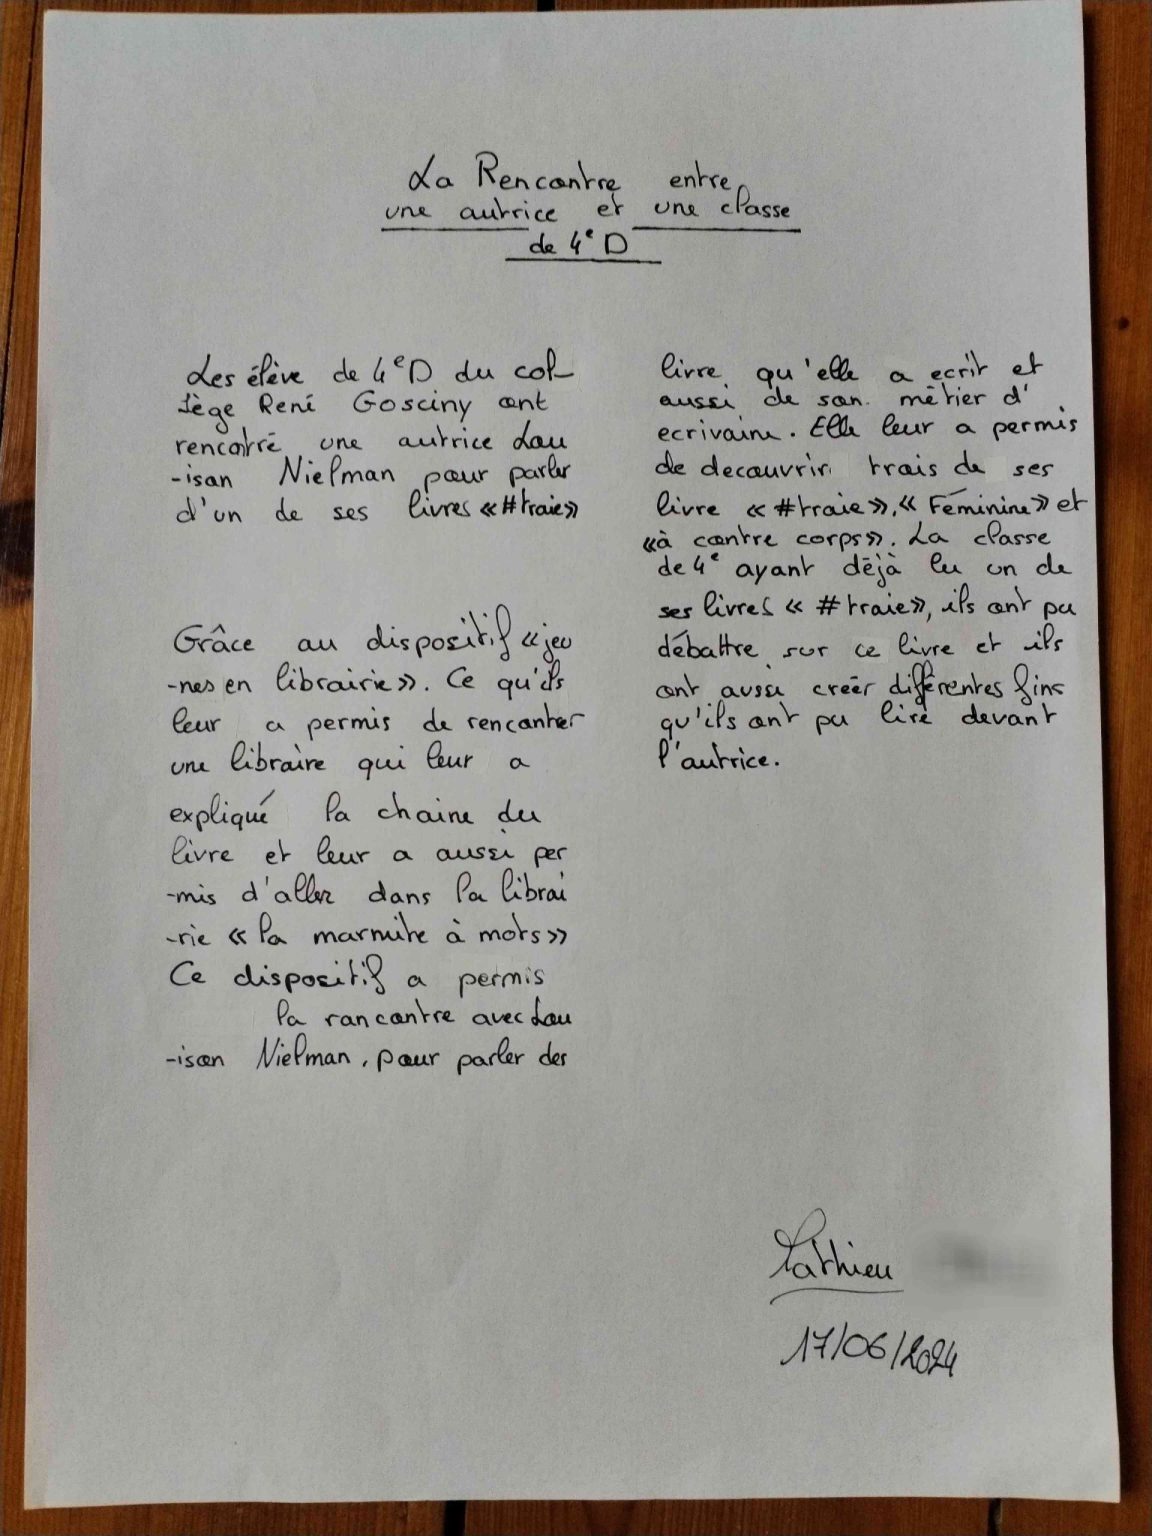 La Rencontre entre
une autrice et une classe
de 4e D
Les élève de 4e D du col-
lège René Gosciny ont
rencontré une autrice Lou
-isan Nielman pour parler
d'un de ses livres «#traie»
Grâce au dispositif «jeu
-nes en librairie». Ce qu'ils
leur a permis de rencontrer
une libraire qui leur a
expliqué la chaine du
livre et leur a aussi per
-mis d'aller dans la librai
-rie «la marmite à mots»
Ce dispositif a permis
la rancontre avec Lou
-isan Nielman, pour parler des
livre qu'elle a ecrit et
aussi de son métier d'
ecrivaine. Elle leur a permis
de decouvrir trois de ses
livre «#traie», «Féminine» et
«à contre corps». La classe
de 4e ayant déjà lu un de
ses livres «#traie», ils ont pu
débattre sur ce livre et ils
ont aussi créer différentes fins
qu'ils ont pu lire devant
l'autrice.
Mathieu
17/06/2024